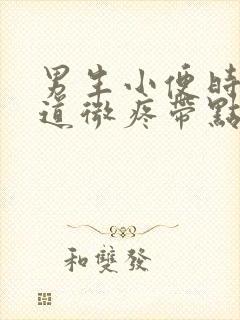 男生小便時
道微疼帶點
和雙發